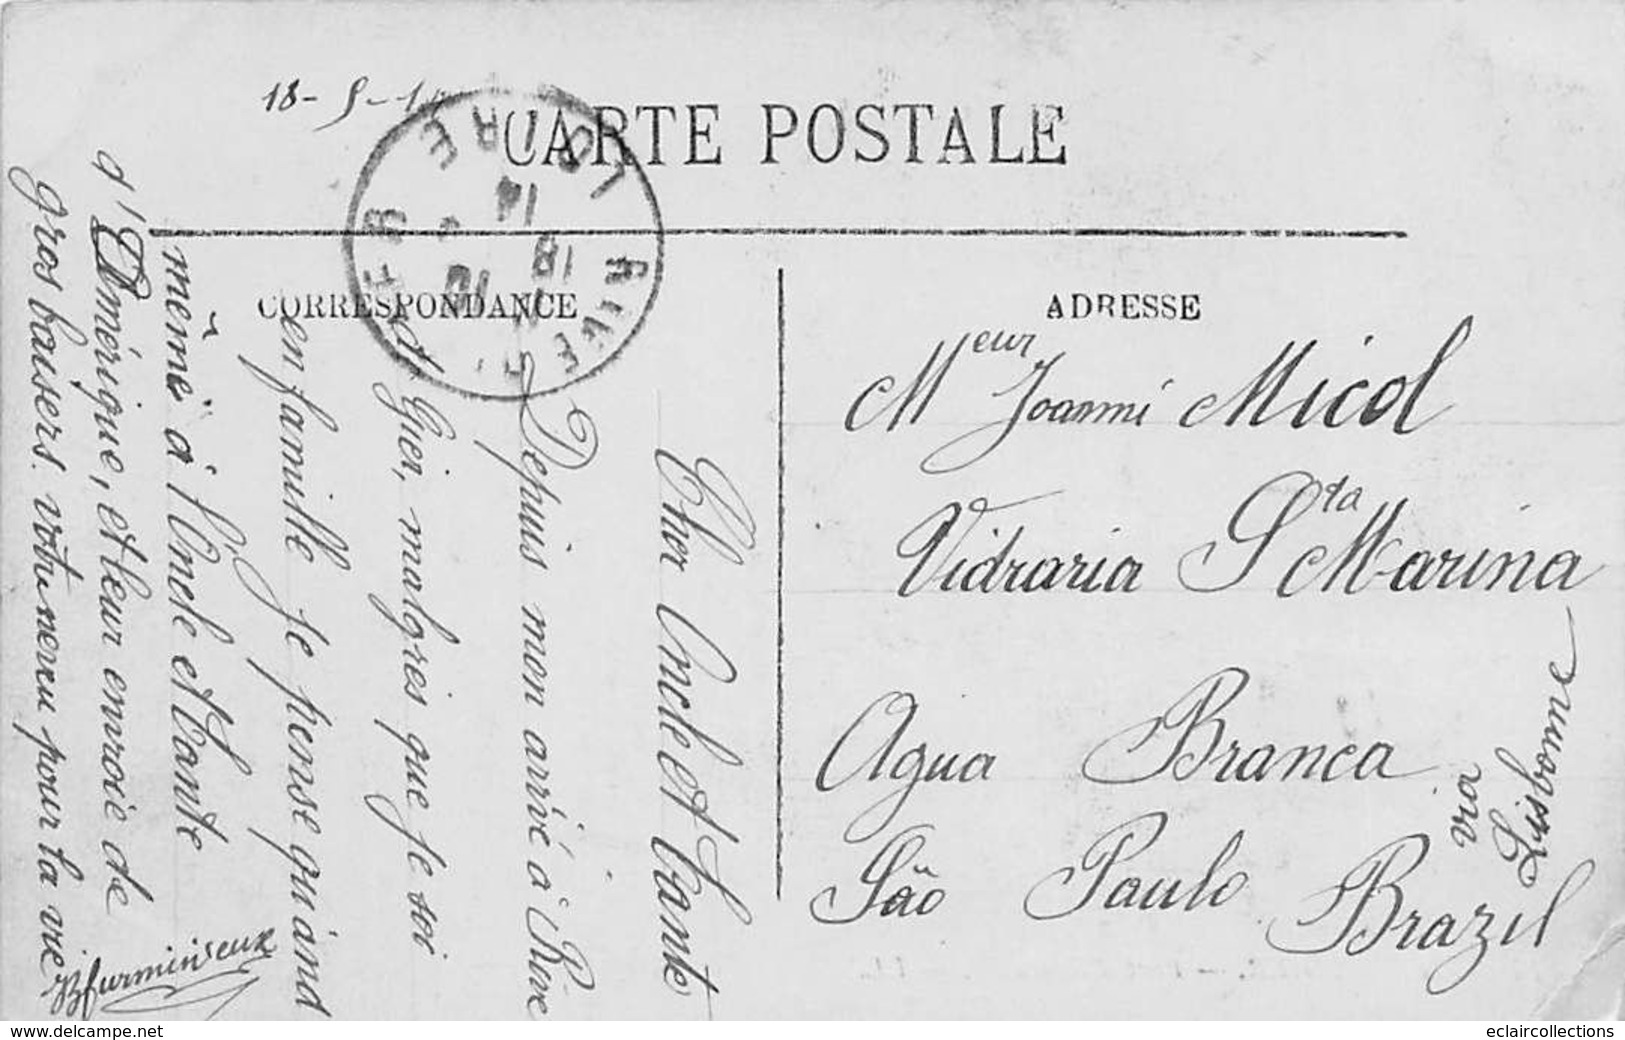 18-5-1
CARTE POSTALE
CORRESPONDANCE
ADRESSE
RIVE
LOIRE
18
14
Cher Oncle et Tante
Depuis mon arivé à Rive
de Gier, malgres que je soi
en famille je pense quand
même a l'Oncle et Tante
d'Amérique, et leur envoie de
gros baisers. votre neveu pour la vie
Meur Joanni Micol
Vidraria Sta Marina
Agua Branca
São Paulo
Brazil
via Lisbonne
delcampe.net
eclaircollections